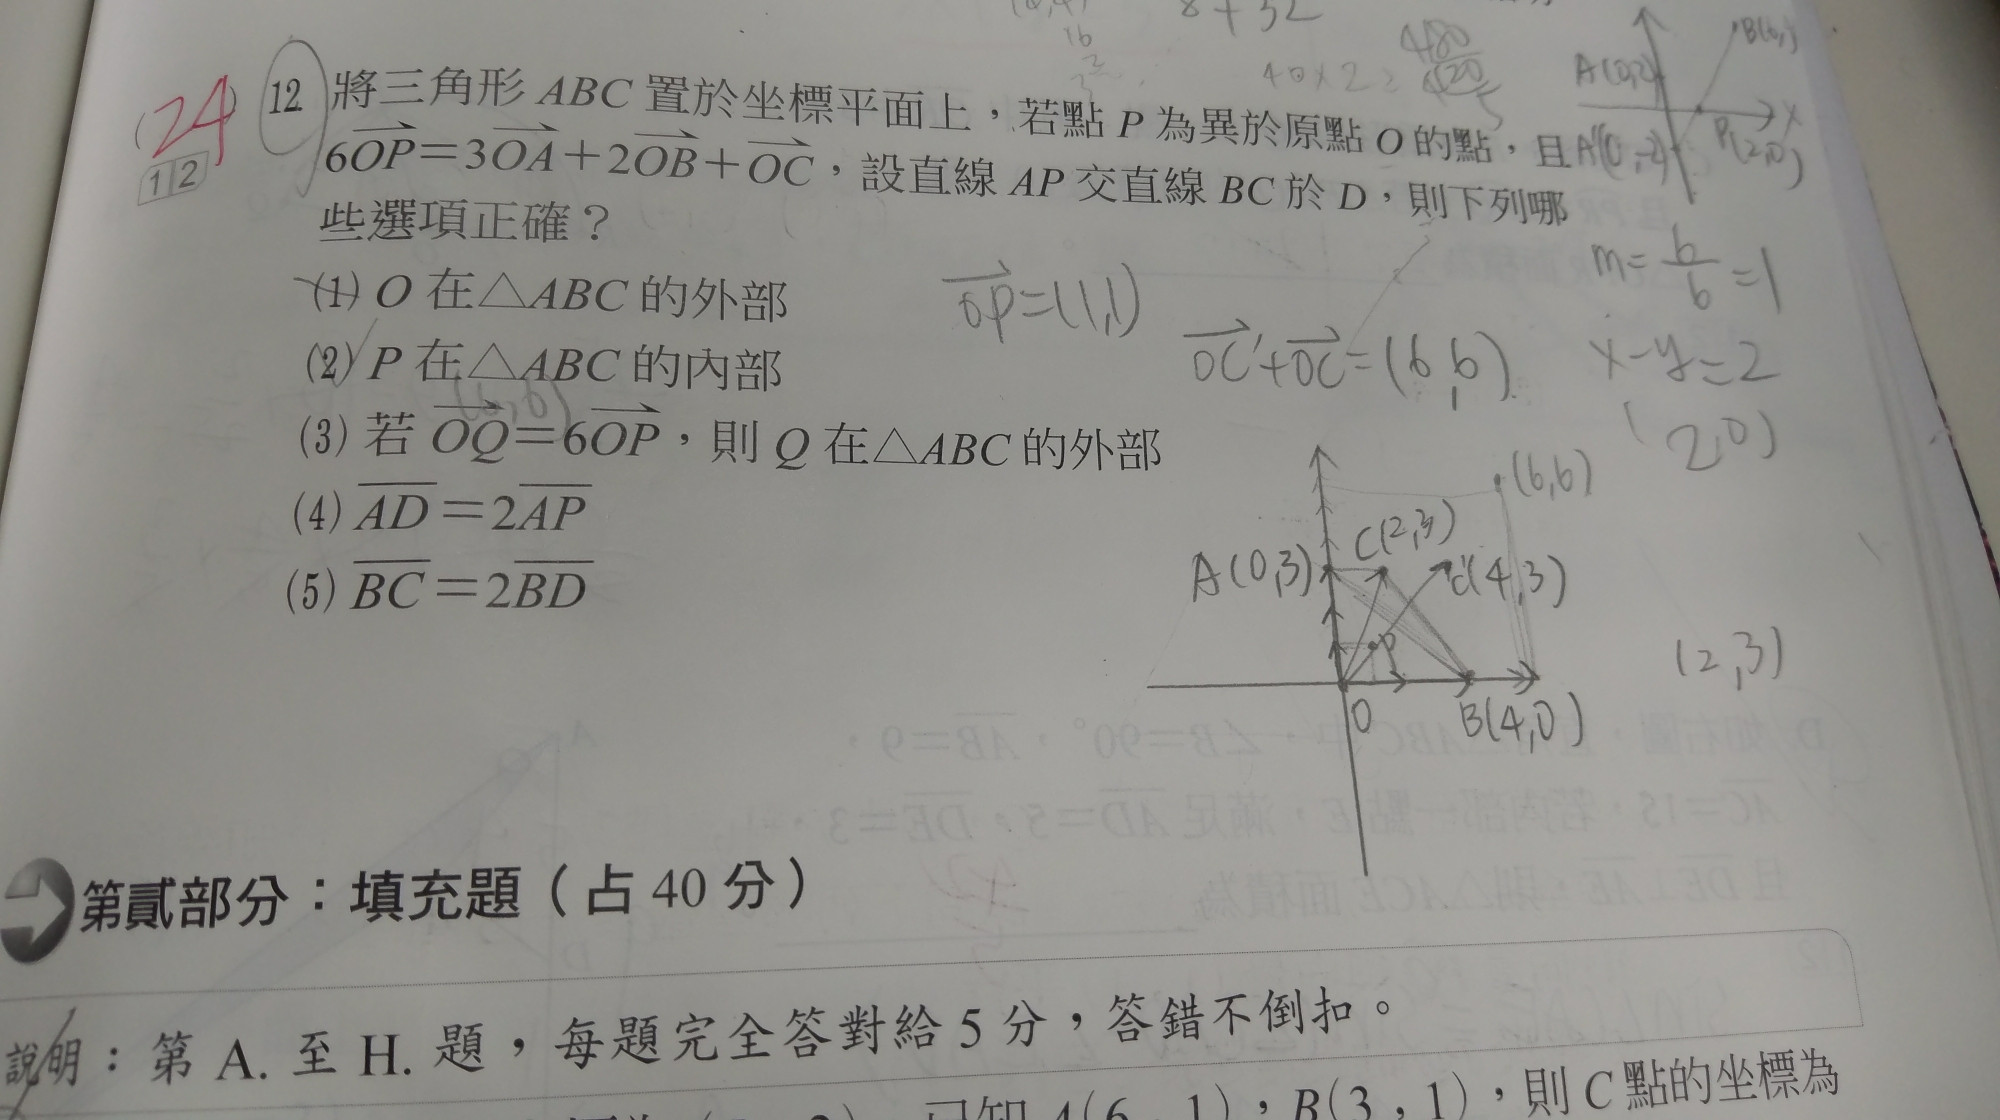 8+32
16
2
40×2=
480
120
5
A(0,2)
x
P(2,0)
(24)
12
12 將三角形 ABC 置於坐標平面上，若點 P 為異於原點 O 的點，且
6OP=3OA+2OB+OC，設直線 AP 交直線 BC 於 D，則下列哪
些選項正確？
(1) O 在△ABC 的外部
(2) P 在△ABC 的內部
(3) 若 OQ=6OP，則 Q 在△ABC 的外部
(6,6)
(4) AD=2AP
(5) BC=2BD
OP=(1,1)
OC'+OC=(6,6)
m=6/6=1
x-y=2
(2,0)
(6,6)
A(0,3)
C(2,3)
C'(4,3)
P
O
B(4,0)
(2,3)
第貳部分：填充題（占 40 分）
說明：第 A. 至 H. 題，每題完全答對給 5 分，答錯不倒扣。
已知 A(6,1)，B(3,1)，則 C 點的坐標為